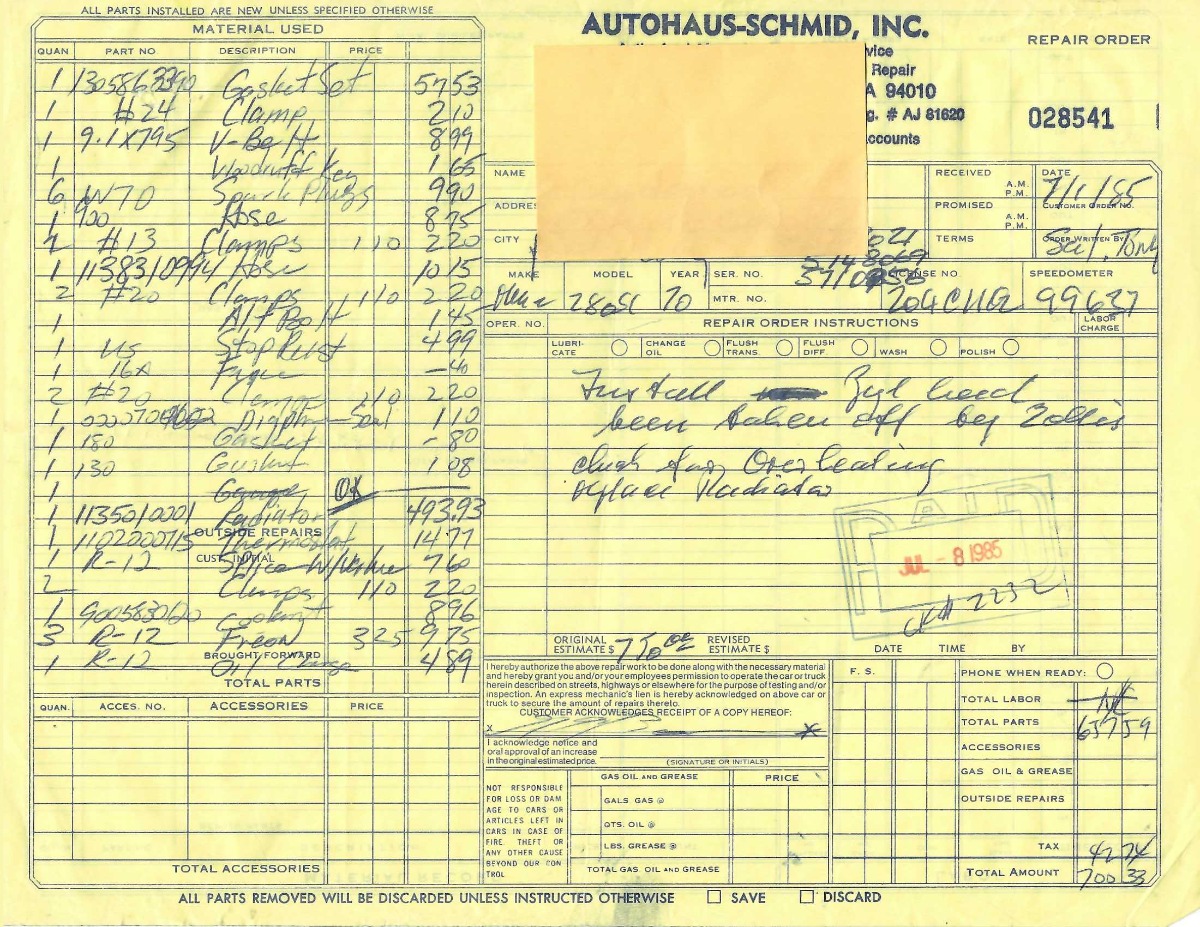 ALL PARTS INSTALLED ARE NEW UNLESS SPECIFIED OTHERWISE
MATERIAL USED
QUAN PART NO DESCRIPTION PRICE
1 Gasket Set 57 53
1 #24 Clamp 2 10
1 9.1X795 V-Belt 8 99
1 Woodruff Key 1 65
6 W70 Spark Plugs 9 90
1 900 Hose 8 75
2 #13 Clamps 1 10 2 20
1 1138310994 Hose 10 15
2 #20 Clamps 1 10 2 20
1 Alt Bolt 1 45
1 US Stop Rust 4 99
1 16A Fuse – 40
2 #20 Clamps 1 10 2 20
1 Seal 1 10
1 180 Gasket – 80
1 130 Gasket 1 08
1 OK
1 1135010001 Radiator 493.93
OUTSIDE REPAIRS
1 1102000715 Thermostat 14 77
CUST. INITIAL
1 R-12 Splice W/Valve 7 60
2 Clamps 1 10 2 20
1 Coolant 8 96
3 R-12 Freon 3 25 9 75
BROUGHT FORWARD
1 R-12 Oil Charge 4 89
TOTAL PARTS
QUAN. ACCES. NO. ACCESSORIES PRICE
TOTAL ACCESSORIES
AUTOHAUS-SCHMID, INC.
vice
Repair
A 94010
g. # AJ 81620
ccounts
REPAIR ORDER
028541
NAME
RECEIVED A.M. P.M.
DATE 7/1/85
ADDRE
PROMISED A.M. P.M.
CUSTOMER ORDER NO.
CITY
TERMS
ORDER WRITTEN BY Sal, Tony
MAKE MODEL YEAR SER. NO. LICENSE NO SPEEDOMETER
280SL 70 MTR. NO. 99637
OPER. NO. REPAIR ORDER INSTRUCTIONS LABOR CHARGE
LUBRICATE CHANGE OIL FLUSH TRANS. FLUSH DIFF. WASH POLISH
Install Zyl head
been taken off by
check for Overheating
replace Radiator
PAID
JUL - 8 1985
CK# 2232
ORIGINAL ESTIMATE $ 750.00 REVISED ESTIMATE $ DATE TIME BY
I hereby authorize the above repair work to be done along with the necessary material
and hereby grant you and/or your employees permission to operate the car or truck
herein described on streets, highways or elsewhere for the purpose of testing and/or
inspection. An express mechanic's lien is hereby acknowledged on above car or
truck to secure the amount of repairs thereto.
CUSTOMER ACKNOWLEDGES RECEIPT OF A COPY HEREOF:
X
I acknowledge notice and
oral approval of an increase
in the original estimated price.
(SIGNATURE OR INITIALS)
NOT RESPONSIBLE
FOR LOSS OR DAM
AGE TO CARS OR
ARTICLES LEFT IN
CARS IN CASE OF
FIRE THEFT OR
ANY OTHER CAUSE
BEYOND OUR CON
TROL
GAS OIL AND GREASE PRICE
GALS. GAS @
QTS. OIL @
LBS. GREASE @
TOTAL GAS OIL AND GREASE
F. S.
PHONE WHEN READY:
TOTAL LABOR NC
TOTAL PARTS 657 59
ACCESSORIES
GAS OIL & GREASE
OUTSIDE REPAIRS
TAX 42 74
TOTAL AMOUNT 700 33
ALL PARTS REMOVED WILL BE DISCARDED UNLESS INSTRUCTED OTHERWISE SAVE DISCARD